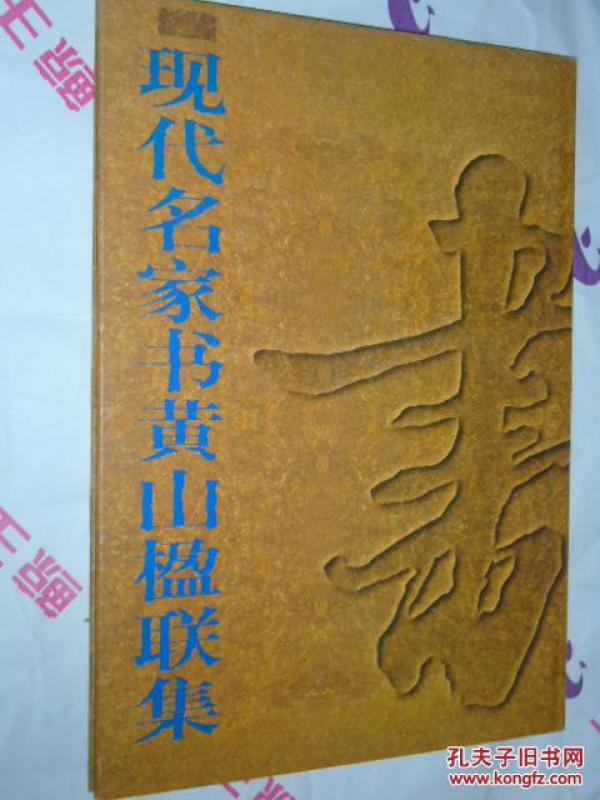 现代名家书黄山楹联集
書
孔夫子旧书网
www.kongfz.com